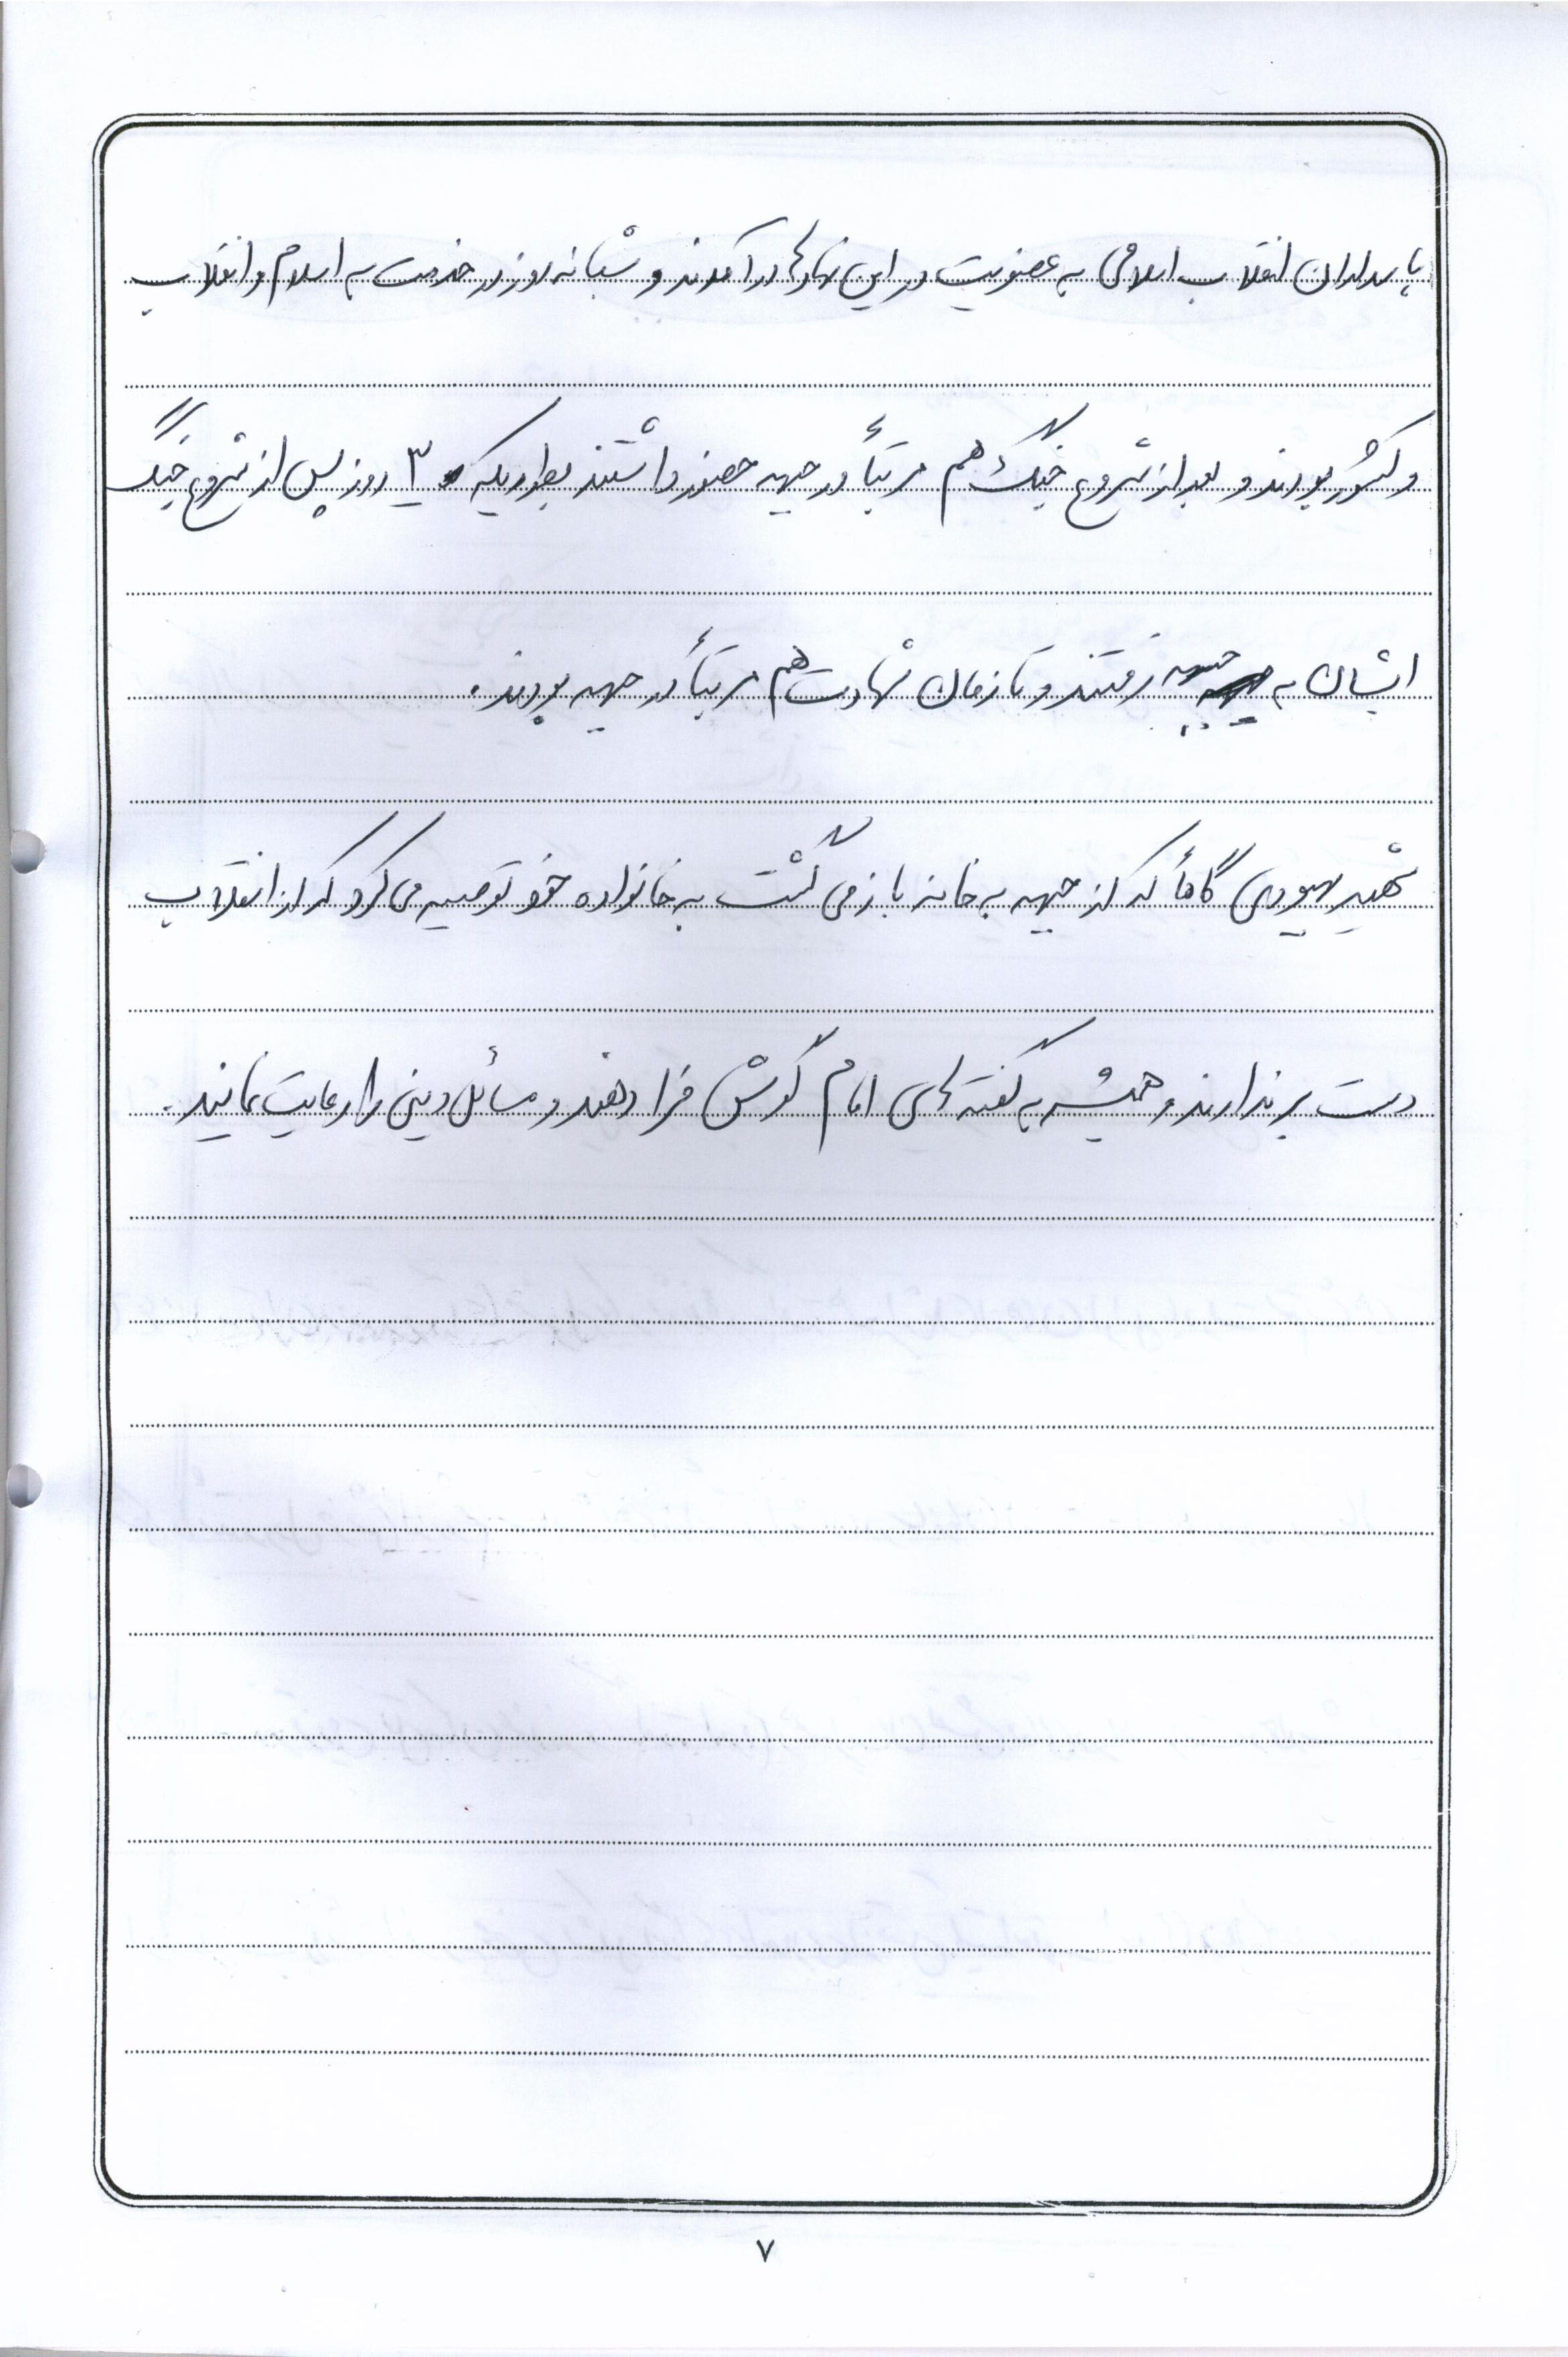 پاسداران انقلاب اسلامی به عضویت در این نهادها درآمدند و شبانه روز در خدمت به اسلام و انقلاب
و کشور بودند و بعد از شروع جنگ هم مرتباً در جبهه حضور داشتند بطوریکه ۳ روز پس از شروع جنگ
ایشان به جبهه رفتند و تا زمان شهادت هم مرتباً در جبهه بودند.
شهید بهبودی گاهاً که از جبهه به خانه باز می گشت به خانواده خود توصیه می کرد که از انقلاب
دست برندارند و همیشه به گفته های امام گوش فرا دهند و مسائل دینی را رعایت نمایند.
۷